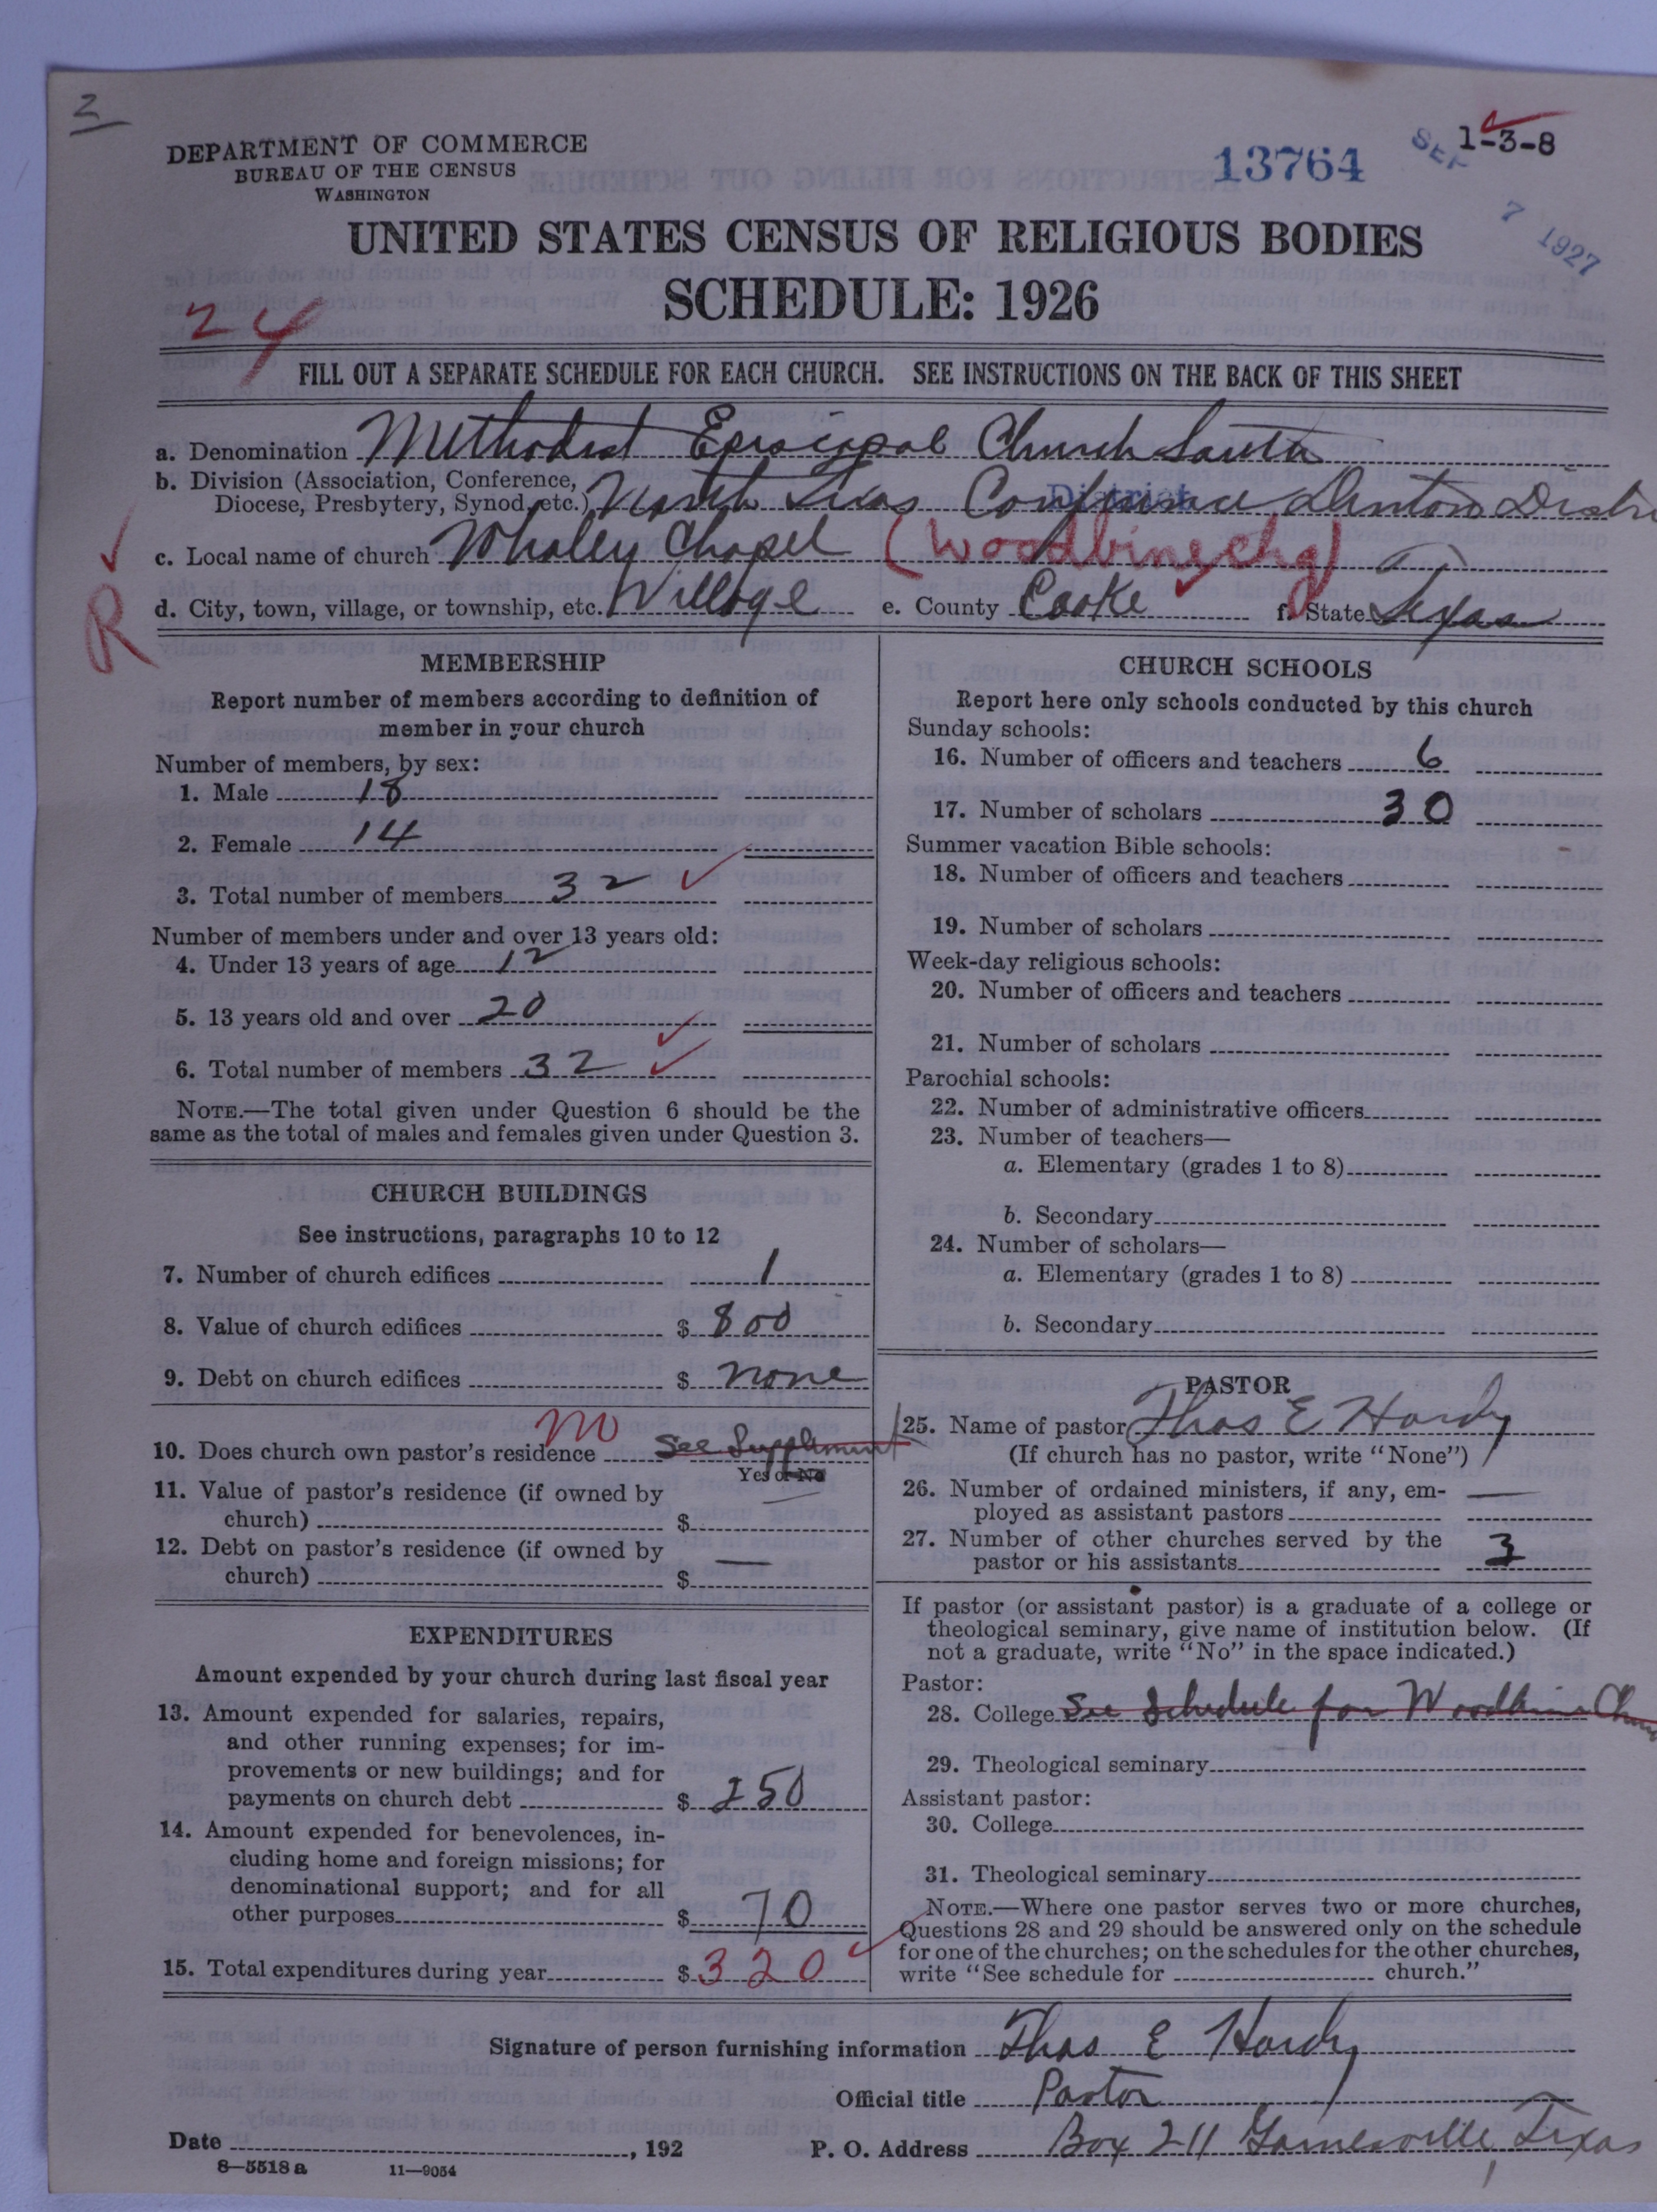 2
DEPARTMENT OF COMMERCE
BUREAU OF THE CENSUS
WASHINGTON
13764
1-3-8
SEP 7 1927
UNITED STATES CENSUS OF RELIGIOUS BODIES
SCHEDULE: 1926
24
FILL OUT A SEPARATE SCHEDULE FOR EACH CHURCH. SEE INSTRUCTIONS ON THE BACK OF THIS SHEET
a. Denomination Methodist Episcopal Church South
b. Division (Association, Conference,
Diocese, Presbytery, Synod, etc.) North Texas Conference Denton Distri
District
c. Local name of church Whaley Chapel (Woodbine chg)
R
d. City, town, village, or township, etc. Village e. County Cooke f. State Texas
MEMBERSHIP
Report number of members according to definition of
member in your church
Number of members, by sex:
1. Male 18
2. Female 14
3. Total number of members 32
Number of members under and over 13 years old:
4. Under 13 years of age 12
5. 13 years old and over 20
6. Total number of members 32
NOTE.—The total given under Question 6 should be the
same as the total of males and females given under Question 3.
CHURCH BUILDINGS
See instructions, paragraphs 10 to 12
7. Number of church edifices 1
8. Value of church edifices $ 800
9. Debt on church edifices $ none
10. Does church own pastor's residence No See Suppliment
Yes or No
11. Value of pastor's residence (if owned by
church) $ —
12. Debt on pastor's residence (if owned by
church) $ —
EXPENDITURES
Amount expended by your church during last fiscal year
13. Amount expended for salaries, repairs,
and other running expenses; for im-
provements or new buildings; and for
payments on church debt $ 250
14. Amount expended for benevolences, in-
cluding home and foreign missions; for
denominational support; and for all
other purposes $ 70
15. Total expenditures during year $ 320
CHURCH SCHOOLS
Report here only schools conducted by this church
Sunday schools:
16. Number of officers and teachers 6
17. Number of scholars 30
Summer vacation Bible schools:
18. Number of officers and teachers
19. Number of scholars
Week-day religious schools:
20. Number of officers and teachers
21. Number of scholars
Parochial schools:
22. Number of administrative officers
23. Number of teachers—
a. Elementary (grades 1 to 8)
b. Secondary
24. Number of scholars—
a. Elementary (grades 1 to 8)
b. Secondary
PASTOR
25. Name of pastor Thos E Hardy
(If church has no pastor, write "None")
26. Number of ordained ministers, if any, em-
ployed as assistant pastors —
27. Number of other churches served by the
pastor or his assistants 3
If pastor (or assistant pastor) is a graduate of a college or
theological seminary, give name of institution below. (If
not a graduate, write "No" in the space indicated.)
Pastor:
28. College See Schedule for Woodbine
29. Theological seminary
Assistant pastor:
30. College
31. Theological seminary
NOTE.—Where one pastor serves two or more churches,
Questions 28 and 29 should be answered only on the schedule
for one of the churches; on the schedules for the other churches,
write "See schedule for church."
Signature of person furnishing information Thos E Hardy
Official title Pastor
Date , 192 P. O. Address Box 211 Gainesville, Texas
8—5518 a 11—9054